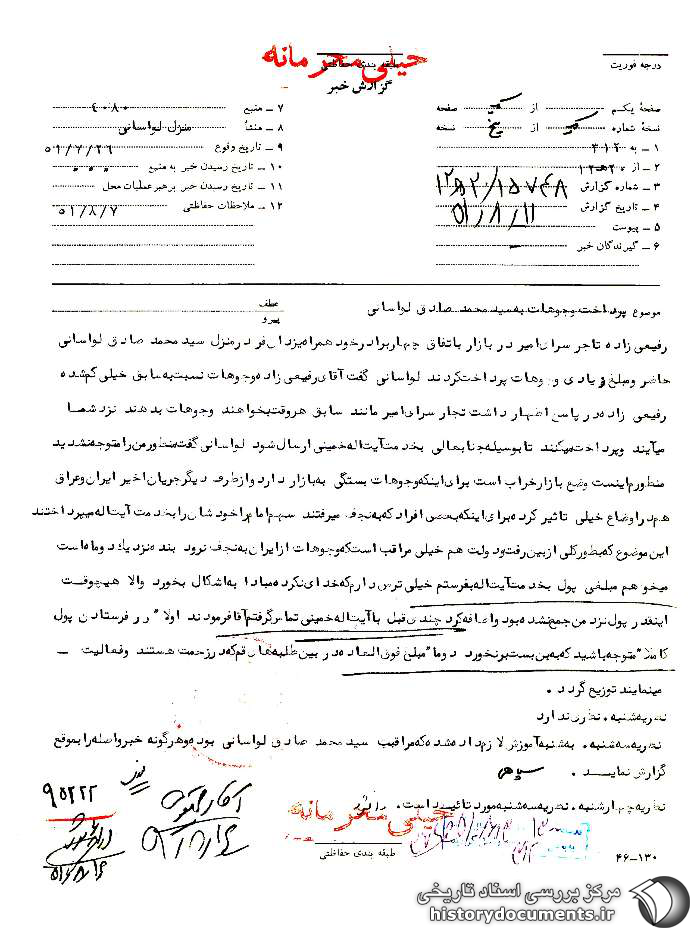 خیلی محرمانه
طبقه بندی حفاظتی
درجه فوریت
گزارش خبر
صفحهٔ یکم از یک صفحه
نسخهٔ شماره یک از پنج نسخه
۱ ـ به ۳۱۲
۲ ـ از ۲۰ هـ ۱۲
۳ ـ شماره گزارش ۱۲ هـ ۲۰/۱۵۷۴۸
۴ ـ تاریخ گزارش ۵۱/۸/۱۱
۵ ـ پیوست
۶ ـ گیرندگان خبر
۷ ـ منبع ۴۰۸۰
۸ ـ منشأ منزل لواسانی
۹ ـ تاریخ وقوع ۵۱/۷/۲۶
۱۰ ـ تاریخ رسیدن خبر به منبع
۱۱ ـ تاریخ رسیدن خبر برهبر عملیات محل
۱۲ ـ ملاحظات حفاظتی ۵۱/۸/۷
موضوع پرداخت وجوهات به سید محمد صادق لواسانی
عطف
پیرو
رفیعی زاده تاجر سرای امیر در بازار باتفاق چهار برادر خود همراه یزدان فرد در منزل سید محمد صادق لواسانی
حاضر و مبلغ زیادی وجوهات پرداخت کردند لواسانی گفت آقای رفیعی زاده وجوهات نسبت به سابق خیلی کم شده
رفیعی زاده در پاسخ اظهار داشت تجار سرای امیر مانند سابق هر وقت بخواهند وجوهات بدهند نزد شما
میآیند و پرداخت میکنند تا بوسیله جنابعالی بخدمت آیت اله خمینی ارسال شود لواسانی گفت منظور من را متوجه نشدید
منظورم اینست وضع بازار خراب است برای اینکه وجوهات بستگی به بازار دارد و از طرف دیگر جریان اخیر ایران و عراق
هم در اوضاع خیلی تاثیر کرده برای اینکه بعضی افراد که به نجف میرفتند سهم امام را خودشان را بخدمت آیت اله میپرداختند
این موضوع که بطور کلی از بین رفت و دولت هم خیلی مراقب است که وجوهات از ایران به نجف نرود بنده نزدیک دو ماه است
میخواهم مبلغی پول بخدمت آیت اله بفرستم خیلی ترس دارم که خدای نکرده مبادا به اشکال بخورد والا هیچوقت
اینقدر پول نزد من جمع نشده بود و اضافه کرد چندی قبل با آیت اله خمینی تماس گرفتم آقا فرمودند اولا" در فرستادن پول
کاملا" متوجه باشید که به بن بست برنخورد دوما" مبلغ فوق العاده در بین طلبه های قم که در زحمت هستند و فعالیت ـ
مینمایند توزیع گردد .
نظریه شنبه . نظری ندارد
نظریه سه شنبه . به شنبه آموزش لازم داده شده که مراقب سید محمد صادق لواسانی بوده و هرگونه خبر واصله را بموقع
گزارش نماید .
نظریه چهارشنبه . نظریه سه شنبه مورد تائید است .
۹۵۲۲۲
خیلی محرمانه
طبقه بندی حفاظتی
۴۶ـ۱۳۰
مرکز بررسی اسناد تاریخی
historydocuments.ir